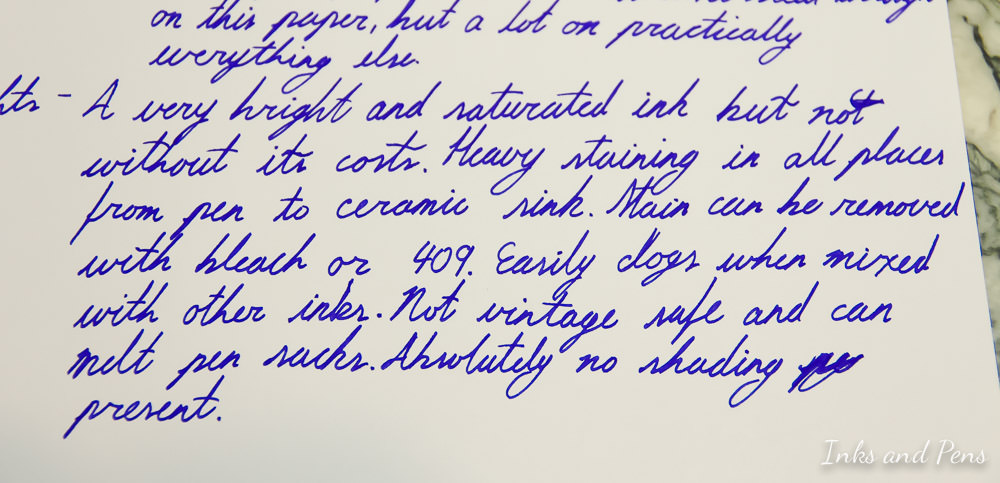 on this paper, but a lot on practically
everything else.
A very bright and saturated ink but not
without its costs. Heavy staining in all places
from pen to ceramic sink. Stain can be removed
with bleach or 409. Easily clogs when mixed
with other inks. Not vintage safe and can
melt pen sacks. Absolutely no shading
present.
Inks and Pens